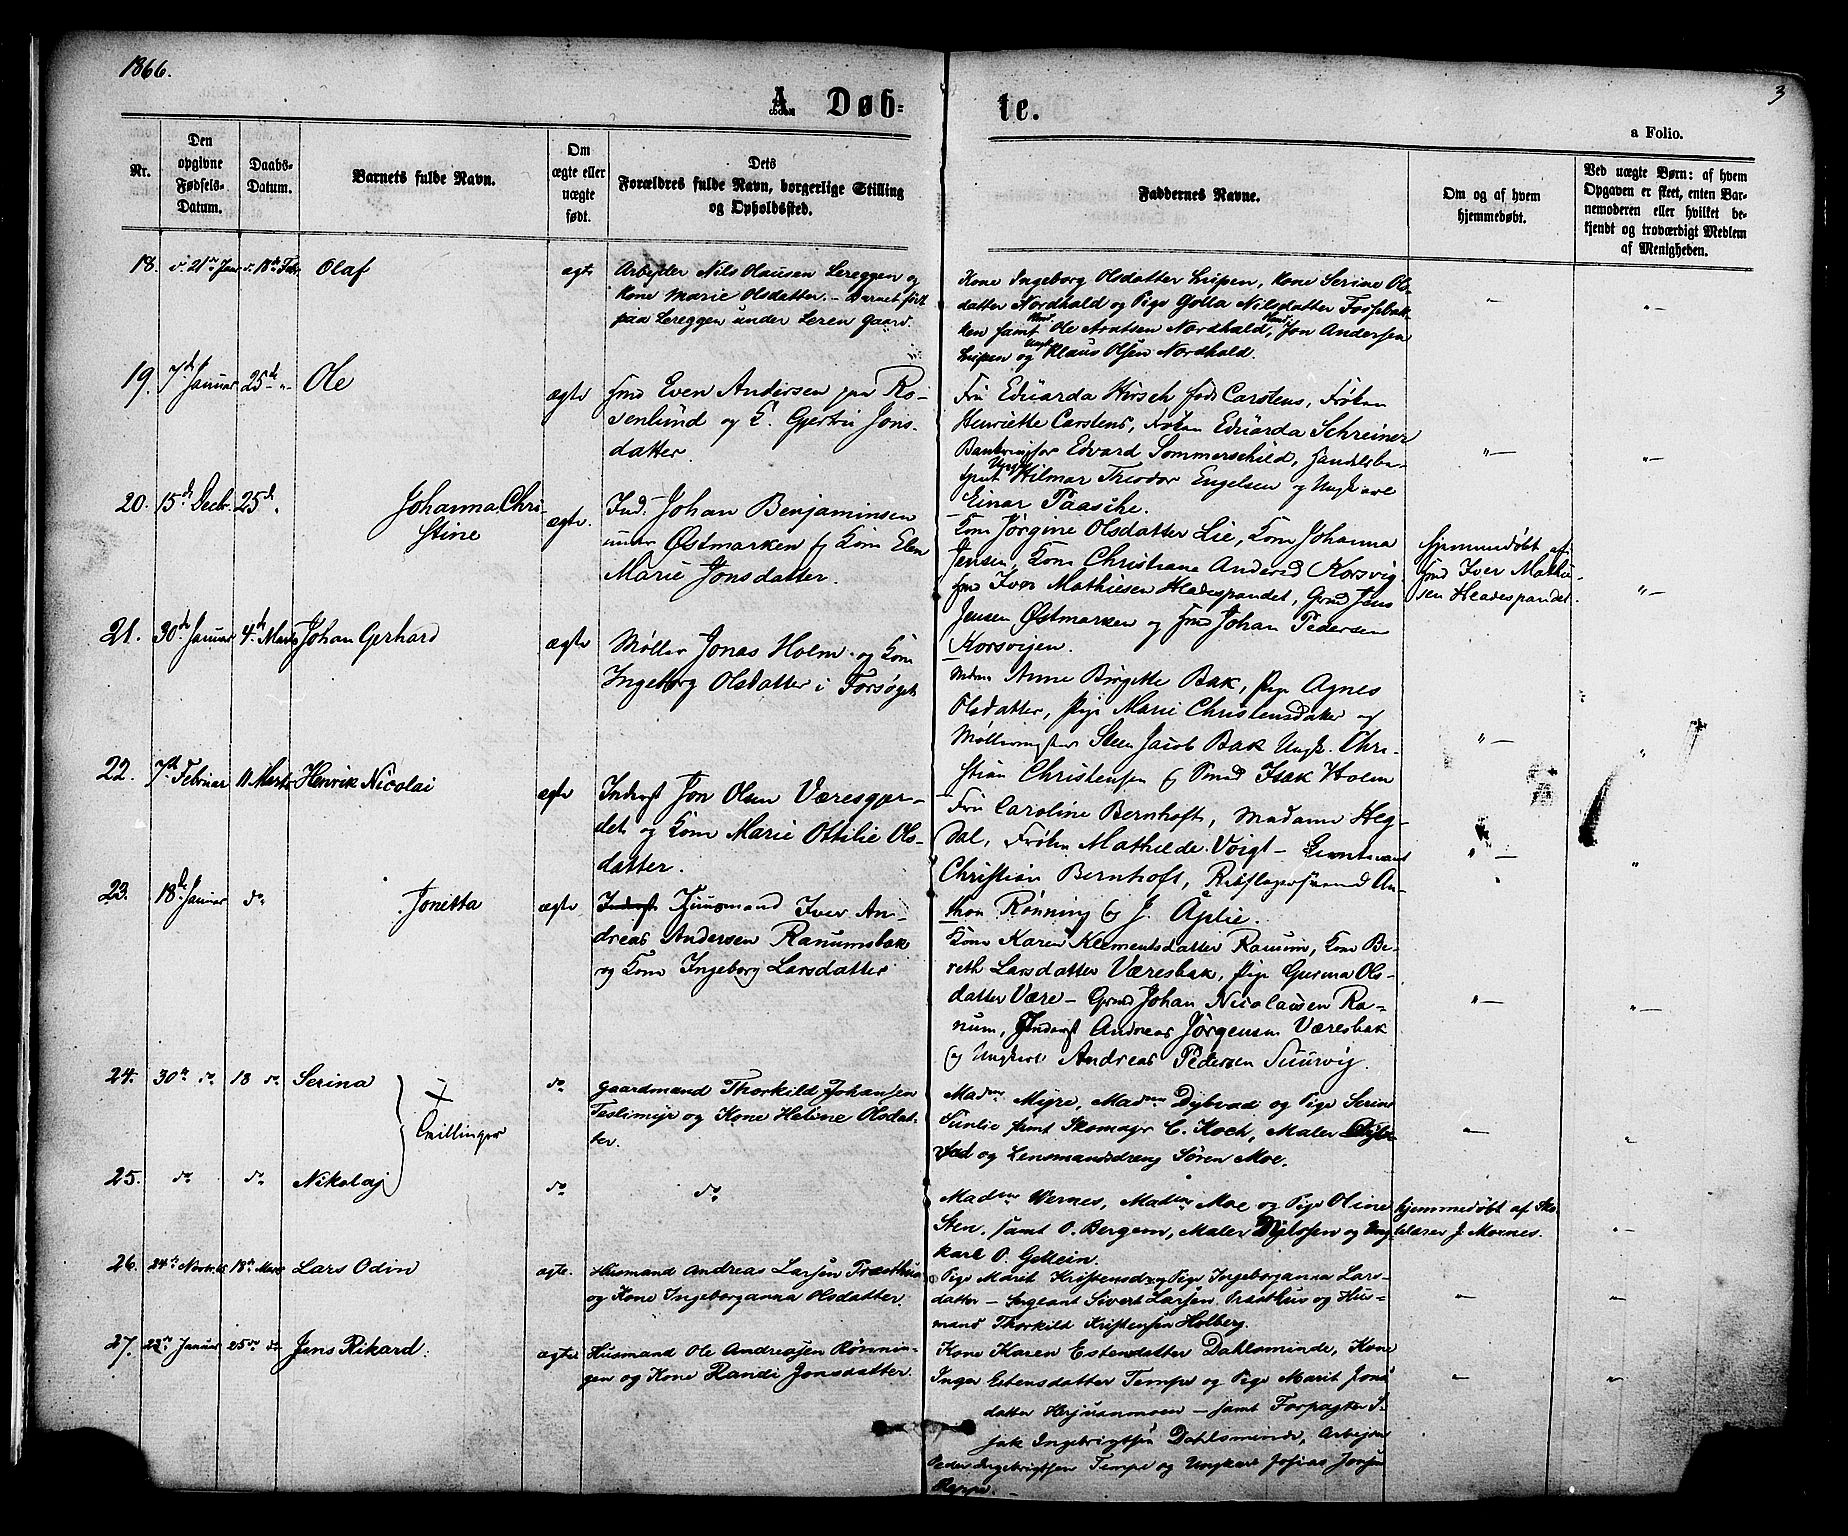 1866.
3
A. Døb-
te.
a Folio.
Nr.
Den opgivne Fødsels-Datum.
Daabs-Datum.
Barnets fulde Navn.
Om ægte eller uægte født.
Dets Forældres fulde Navn, borgerlige Stilling og Opholdssted.
Faddernes Navne.
Om og af hvem hjemmedøbt.
Ved uægte Børn: af hvem Opgaven er skeet, enten Barnemoderen eller hvilket bekjendt og troværdigt Medlem af Menigheden.
18. do 21de Jan do 18de Feb. Olaf
ægte
Arbeider Nils Olausen Lereggen og
Kone Marie Olsdatter. - Barnet født
paa Lereggen under Leren Gaard.
Kone Ingeborg Olsdatter, Kone Serine Ols-
datter Nordhald og Pige Golla Nilsdatter Fossebak-
ken samt Ole Arntsen Nordhald, Jon Andersen
og Ungk Klaus Olsen Nordhald.
19. 7de Januar 25de " Ole
ægte
Hmd Even Andersen paa Ro-
senlund og K. Gjertru Jons-
datter.
Fru Eduarda Hirsch født Carstens, Frøken
Henriette Carstens, Frøken Eduarda Schreiner
Edvard Sommerschild, Handelsbe-
Hilmar Theodor Engelsen og Ungkarl
Einar Paasche.
20. 15de Decbr. 25de " Johanna Chri-
stine
ægte.
Ind. Johan Benjaminsen
under Østmarken og Kone Elen
Marie Jonsdatter.
Kone Jørgine Olsdatter Lie, Kone Johanna
Jensen, Kone Christiane Anders Korsvig.
Hmd Iver Mathiesen Hladespandet, Gmd Jens
Jensen Østmarken og Hmd Johan Pedersen
Korsvigen.
Hjemmedøbt af
Hmd Iver Mathie-
sen Hladespandet.
21. 30de Januar 4de Marts Johan Gerhard
ægte
Møller Jonas Holm og Kone
Ingeborg Olsdatter i Forsøget
Madam Anne Birgitte Bak, Pige Agnes
Olsdatter, Pige Marie Christensdatter og
Møllermester Steen Jacob Bak Ungk. Chri-
stian Christensen og Smed Isak Holm
22. 7de Februar 11 Marts Henrik Nicolai
ægte
Inderst Jon Olsen Væresgjer-
det og Kone Marie Ottilie Ols-
datter.
Fru Caroline Bernhoft, Madame Heg-
dal, Frøken Mathilde Voigt - Lieutenant
Christian Bernhoft, An-
thon Rønning og J. Åplie.
23. 18de Januar do Jonetta
ægte
Inderst Huusmand Iver An-
dreas Andersen Ranumsbak
og Kone Ingeborg Larsdatter
Kone Karen Klementsdatter Ranum, Kone Be-
reth Larsdatter Væresbak, Pige Gurina Ols-
datter Være - Gmd Johan Nicolaisen Ra-
num, Inderst Andreas Jørgensen Væresbak
og Ungkarl Andreas Pedersen Suurvig.
24. 30te do 18 do Serina
+
Tvillinger
do
Gaardmand Thorkild Johansen
Teslimyr og Kone Helene Olsdat-
ter.
Madme Myre, Madme Dybvad og Pige Serine
Sunlie samt Skomager C. Koch, Maler Dyb-
vad og Lensmandsdreng Søren Moe.
25. do do Nikolaj
do
do
Madme Wernes, Madme Moe og Pige Oline
Sten. samt O. Bergem, Maler og Ung-
karl O. Gellein.
hjemmedøbt af Sko-
lelærer J. Moxnes.
26. 24de Novbr 65 18de Marts Lars Odin
ægte.
Husmand Andreas Larsen Præsthus
og Kone Ingeborganna Olsdatter.
Pige Marit Kristensd og Pige Ingeborganna Lars-
datter - Sergeant Sivert Larsen Præsthus og Hus-
mand Thorkild Kristensen Holberg.
27. 22de Januar 25de do Jens Rikard.
ægte
Husmand Ole Andreasen Rønnin-
gen og Kone Randi Jonsdatter.
Kone Karen Estensdatter Dahlsminde, Kone
Inger Estensdatter Tempe og Pige Marit Jons
datter Herjuanmoen - samt Forpagter I-
sak Ingebrigtsen Dahlsminde, Arbejder
Peder Ingebrigtsen Tempe og Ungkarl Josias Jonsen
Reppe.